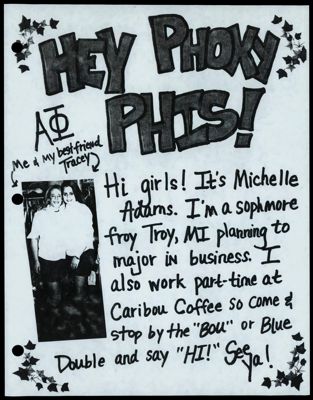 HEY PHOXY
PHIS!
ΑΦ
Me & My best friend
Tracey
Hi girls! It's Michelle
Adams. I'm a sophmore
froy Troy, MI planning to
major in business. I
also work part-time at
Caribou Coffee so come &
stop by the "BOU" or Blue
Double and say "HI!" See
ya!